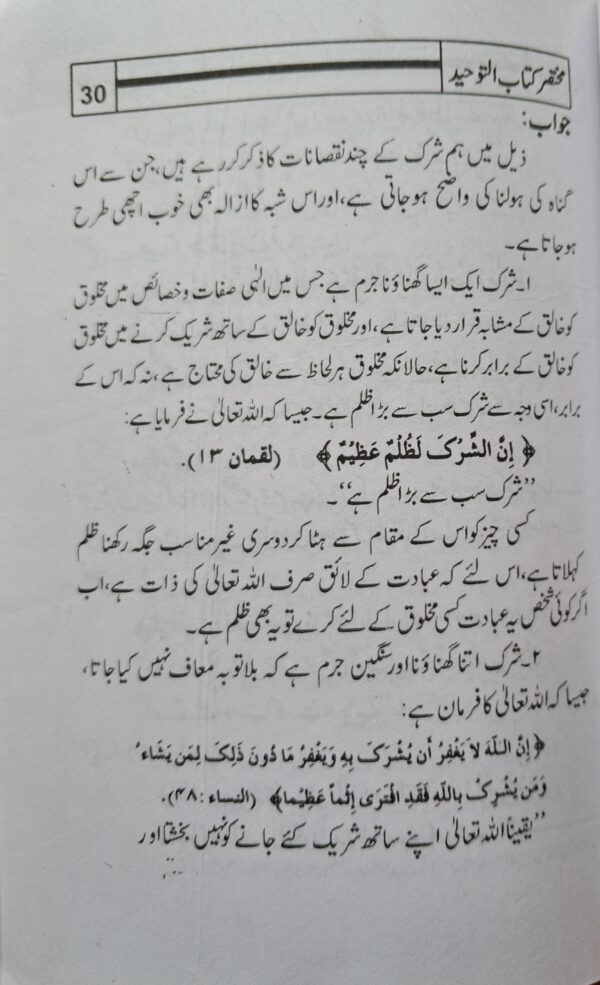 مختصر کتاب التوحید
30
جواب:
ذیل میں ہم شرک کے چند نقصانات کا ذکر کررہے ہیں، جن سے اس
گناہ کی ہولنا کی واضح ہوجاتی ہے، اور اس شبہ کا ازالہ بھی خوب اچھی طرح
ہوجاتا ہے۔
۱۔ شرک ایک ایسا گھناؤنا جرم ہے جس میں الٰہی صفات وخصائص میں مخلوق
کو خالق کے مشابہ قرار دیا جاتا ہے، اور مخلوق کو خالق کے ساتھ شریک کرنے میں مخلوق
کو خالق کے برابر کرنا ہے، حالانکہ مخلوق ہر لحاظ سے خالق کی محتاج ہے، نہ کہ اس کے
برابر، اسی وجہ سے شرک سب سے بڑا ظلم ہے۔ جیسا کہ اللہ تعالیٰ نے فرمایا ہے:
﴿ إِنَّ الشِّرْکَ لَظُلْمٌ عَظِیْمٌ ﴾ (لقمان ۱۳).
’’شرک سب سے بڑا ظلم ہے‘‘۔
کسی چیز کو اس کے مقام سے ہٹا کر دوسری غیر مناسب جگہ رکھنا ظلم
کہلاتا ہے، اس لئے کہ عبادت کے لائق صرف اللہ تعالیٰ کی ذات ہے، اب
اگر کوئی شخص یہ عبادت کسی مخلوق کے لئے کرے تو یہ بھی ظلم ہے۔
۲۔ شرک اتنا گھناؤنا اور سنگین جرم ہے کہ بلا توبہ معاف نہیں کیا جاتا،
جیسا کہ اللہ تعالیٰ کا فرمان ہے:
﴿إِنَّ اللّهَ لاَ یَغْفِرُ أَن یُشْرَکَ بِهِ وَیَغْفِرُ مَا دُونَ ذَلِکَ لِمَن یَشَاءُ
وَمَن یُشْرِکْ بِاللّهِ فَقَدِ افْتَرَى إِثْماً عَظِیْماً﴾ (النساء :۴۸).
’’یقیناً اللہ تعالیٰ اپنے ساتھ شریک کئے جانے کو نہیں بخشتا اور